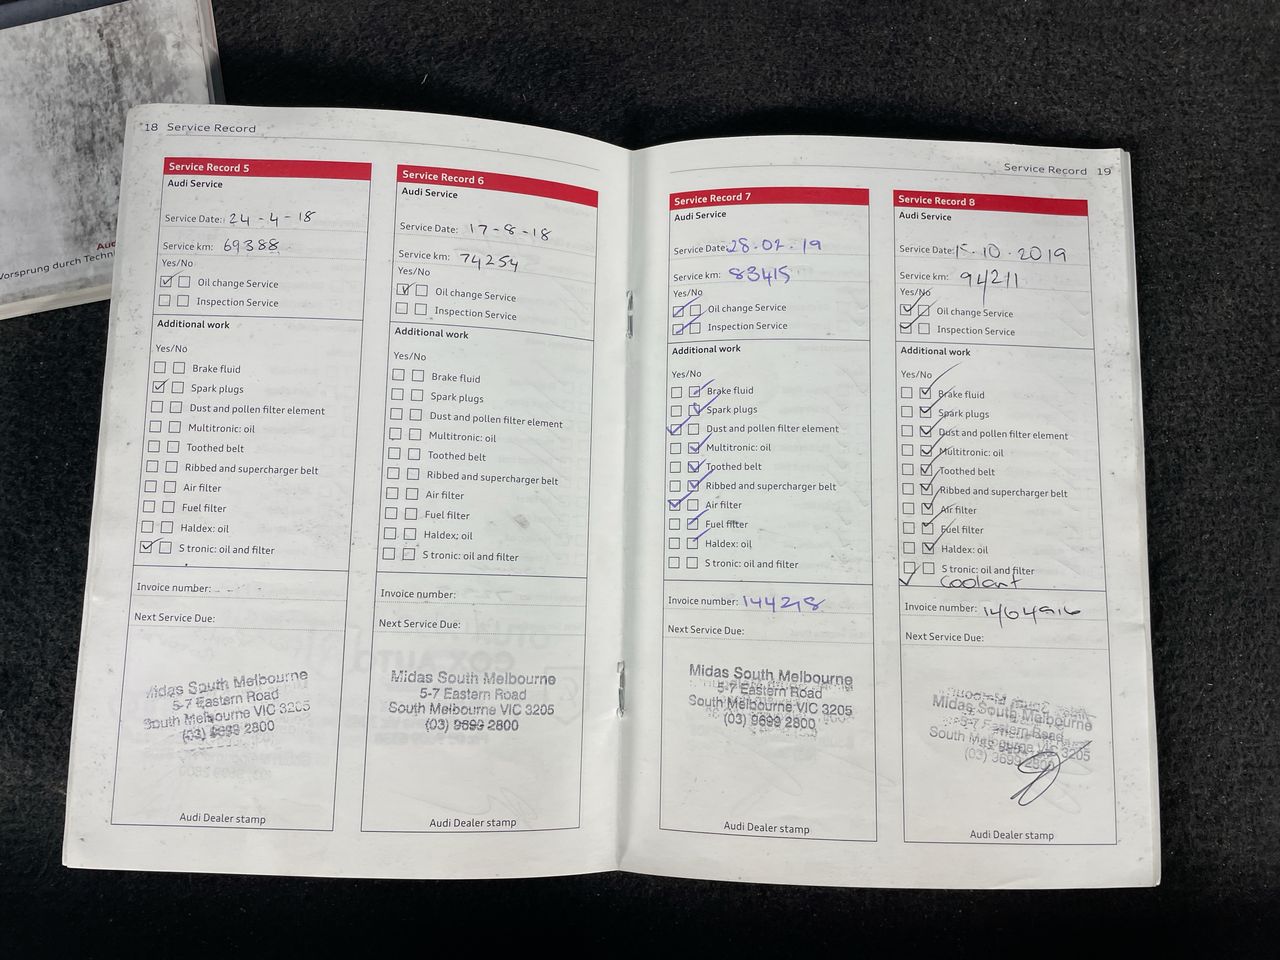 Aud
Vorsprung durch Techni
18 Service Record
Service Record 5
Audi Service
Service Date: 24-4-18
Service km: 69388
Yes/No
Oil change Service
Inspection Service
Additional work
Yes/No
Brake fluid
Spark plugs
Dust and pollen filter element
Multitronic: oil
Toothed belt
Ribbed and supercharger belt
Air filter
Fuel filter
Haldex: oil
S tronic: oil and filter
Invoice number:
Next Service Due:
Midas South Melbourne
5-7 Eastern Road
South Melbourne VIC 3205
(03) 9699 2800
Audi Dealer stamp
Service Record 6
Audi Service
Service Date: 17-8-18
Service km: 74254
Yes/No
Oil change Service
Inspection Service
Additional work
Yes/No
Brake fluid
Spark plugs
Dust and pollen filter element
Multitronic: oil
Toothed belt
Ribbed and supercharger belt
Air filter
Fuel filter
Haldex: oil
S tronic: oil and filter
Invoice number:
Next Service Due:
Midas South Melbourne
5-7 Eastern Road
South Melbourne VIC 3205
(03) 9699 2800
Audi Dealer stamp
Service Record 19
Service Record 7
Audi Service
Service Date: 28.02.19
Service km: 83415
Yes/No
Oil change Service
Inspection Service
Additional work
Yes/No
Brake fluid
Spark plugs
Dust and pollen filter element
Multitronic: oil
Toothed belt
Ribbed and supercharger belt
Air filter
Fuel filter
Haldex: oil
S tronic: oil and filter
Invoice number:
Next Service Due:
Midas South Melbourne
5-7 Eastern Road
South Melbourne VIC 3205
(03) 9699 2800
Audi Dealer stamp
Service Record 8
Audi Service
Service Date: 10.2019
Service km: 94211
Yes/No
Oil change Service
Inspection Service
Additional work
Yes/No
Brake fluid
Spark plugs
Dust and pollen filter element
Multitronic: oil
Toothed belt
Ribbed and supercharger belt
Air filter
Fuel filter
Haldex: oil
S tronic: oil and filter
Coolant
Invoice number:
Next Service Due:
Midas South Melbourne
5-7 Eastern Road
South Melbourne VIC 3205
(03) 9699 2800
Audi Dealer stamp